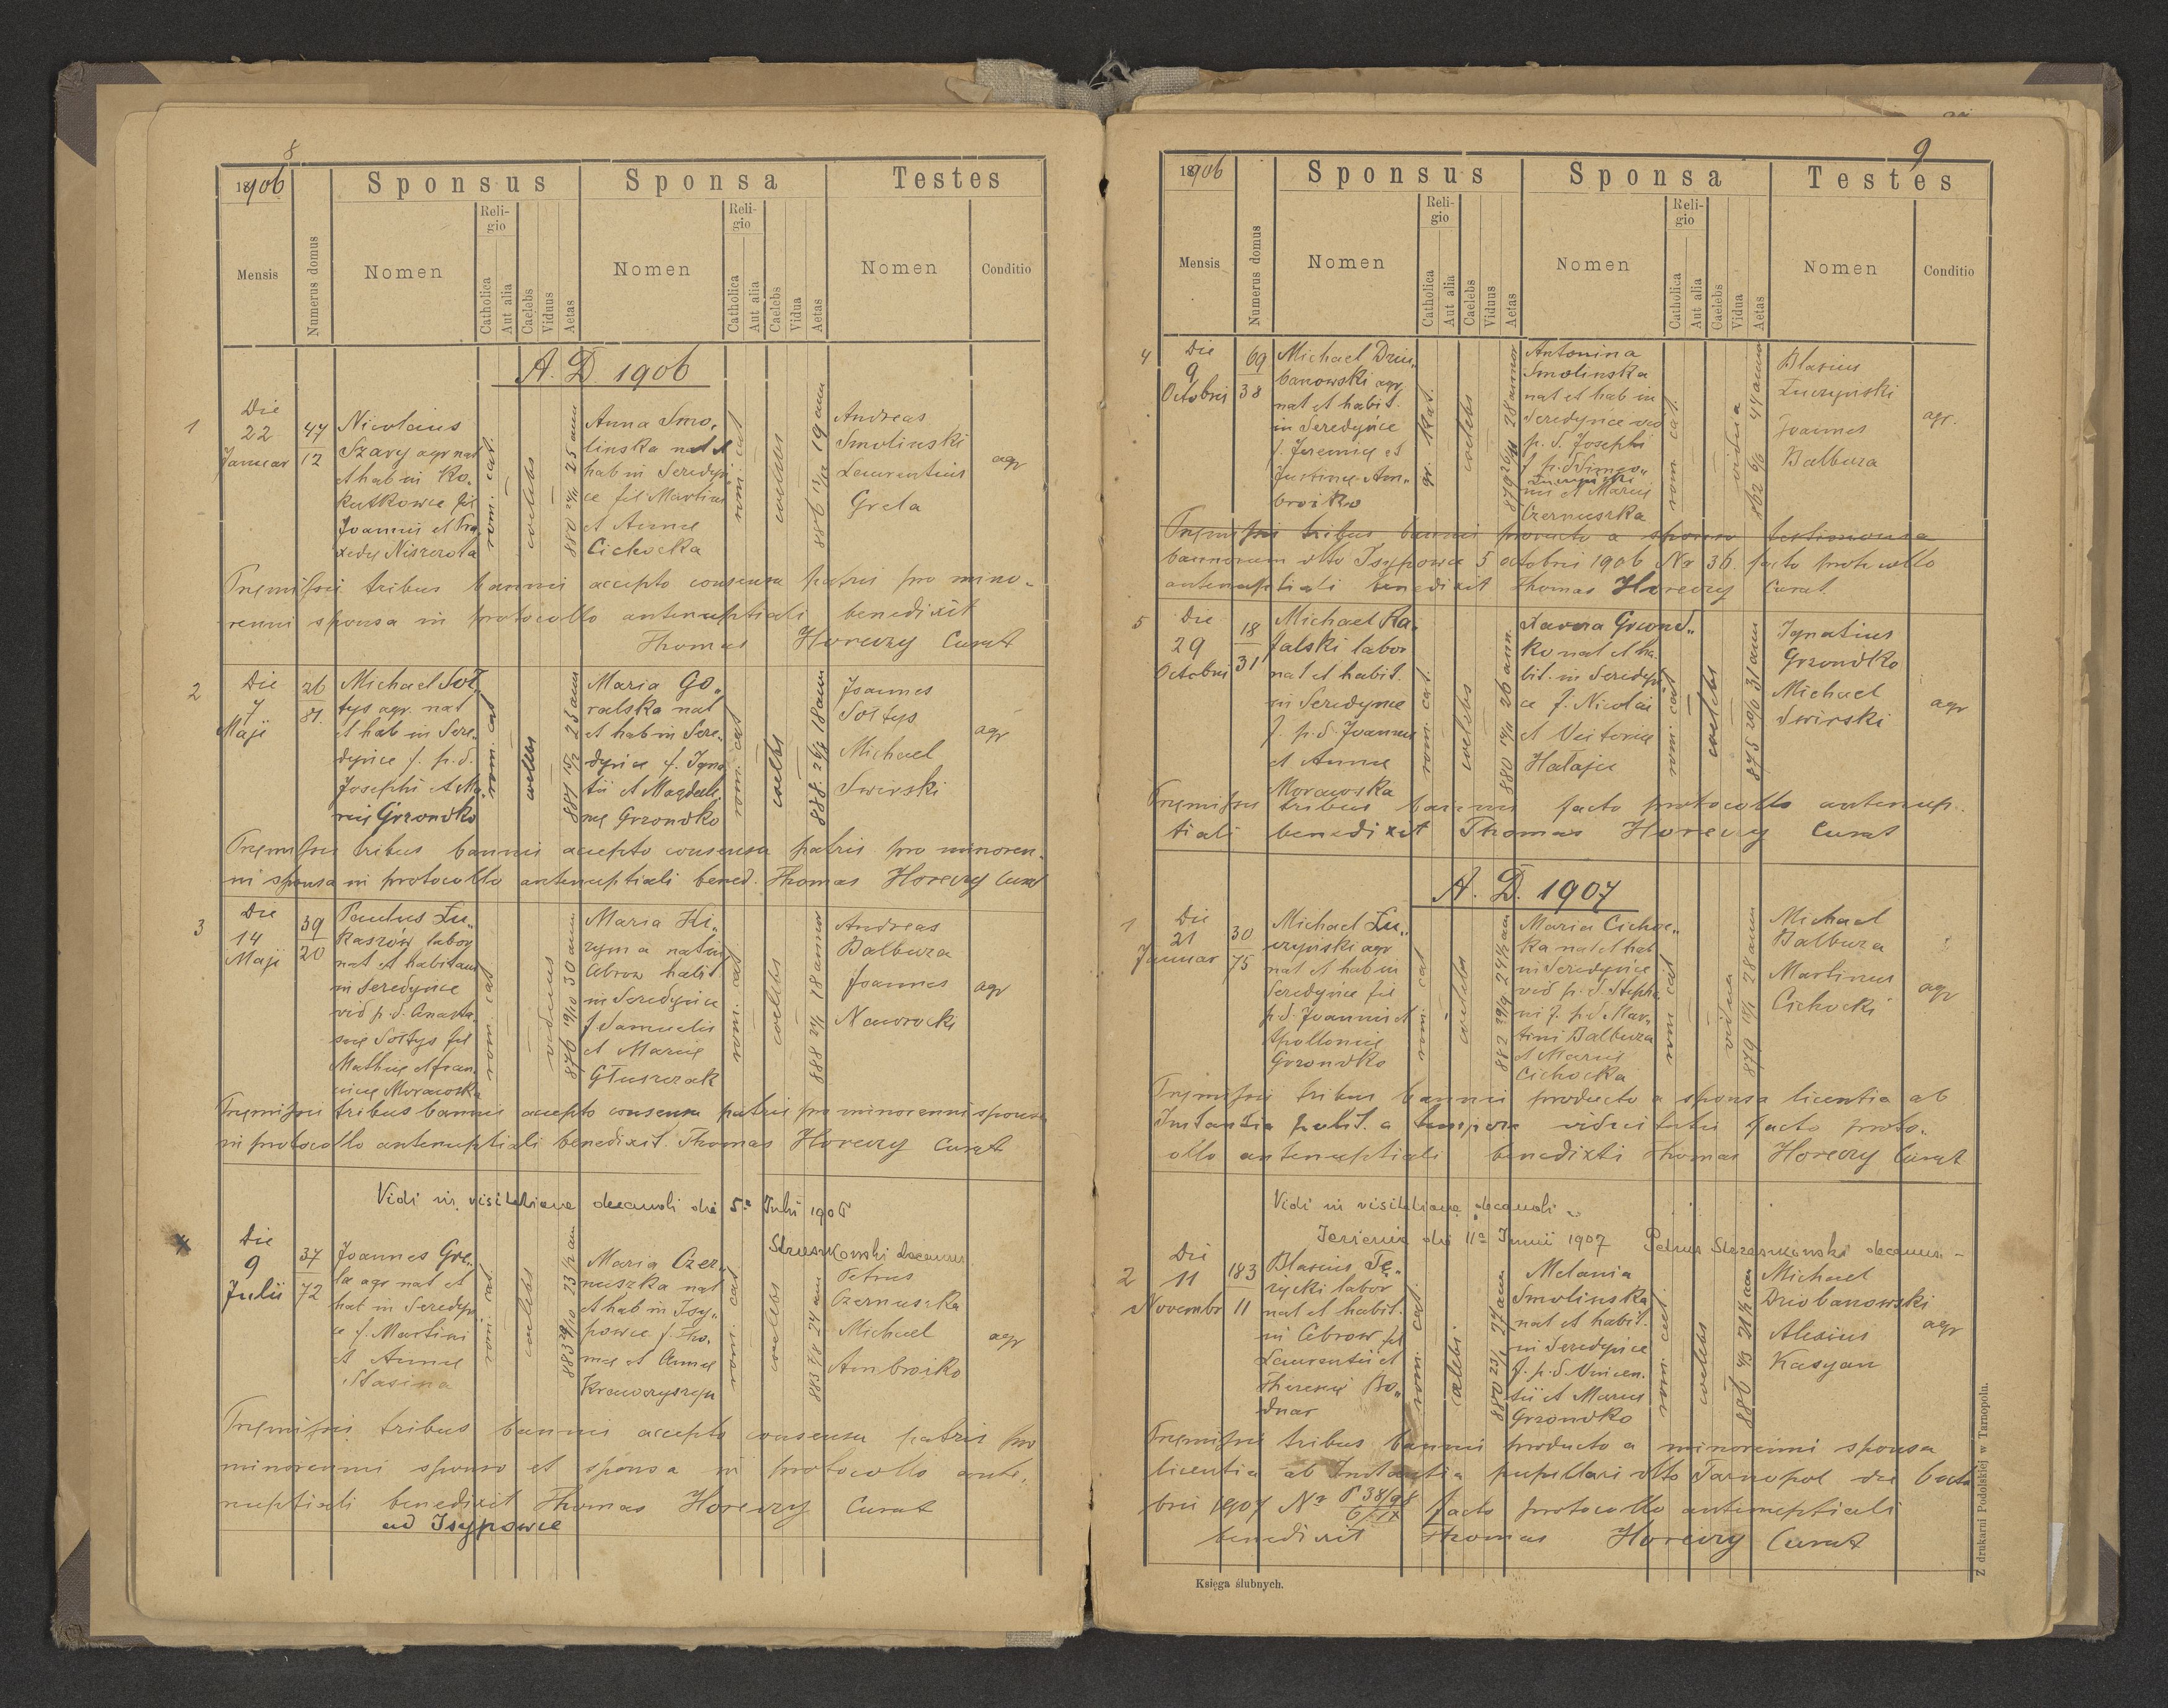 8
1906
Sponsus
Sponsa
Testes
Mensis
Numerus domus
Nomen
Religio
Catholica
Aut alia
Caelebs
Viduus
Aetas
Nomen
Religio
Catholica
Aut alia
Caelebs
Vidua
Aetas
Nomen
Conditio
A. D. 1906
1
Die
22
Januar
47
12
Nicolaus
Szary agr nat
et hab in Ko„
kutkowce fil
Joannis et Pra„
xedis Niszczota
rom. cat.
coelebs
880 25 ann
Anna Smo„
linska nat et
hab in Seredyn
ce fil Martini
et Annæ
Cichocka
rom. cat
coelebs
886 19 ann
Andreas
Smolinski
Laurentius
Greta
agr
Præmissis tribus bannis accepto consensu patris pro mino-
renni sponsa in protocollo antenuptiali benedixit
Thomas Horeczy Curat
2
Die
7
Maji
26
81.
Michael Soł„
tys agr. nat
et hab in Sere„
dynce f. p. d.
Josephi et Ma„
riæ Grzondko
rom. cat
coelebs
881 25 ann
Maria Go„
ralska nat
et hab in Sere„
dynce f. Igna
tii et Magdale„
næ Grzondko
rom. cat
coelebs
888 18 ann
Joannes
Sołtys
Michael
Swirski
agr
Præmissis tribus bannis accepto consensu patris pro minoren-
ni sponsa in protocollo antenuptiali bened. Thomas Horeczy Curat
3
Die
14
Maji
39
20
Paulus Łu„
kaszów labor
nat et habitans
in Seredynce
vid p. d. Anasta„
siæ Sołtys fil
Mathiæ et Fran„
ciscæ Morawska
rom. cat
viduus
876 19/10 30 ann
Maria Hi„
zyma nata in
Cebrow habit
in Seredynce
f Samuelis
et Mariæ
Głuszczak
rom. cat
coelebs
888 18 annor
Andreas
Balbuza
Joannes
Nawrocki
agr
Præmissis tribus bannis accepto consensu patris pro minorenni sponsa
in protocollo antenuptiali benedixit. Thomas Horeczy Curat
Vidi in visitatione decanali die 5a Julii 1906
Struszkowski decanus
Die
9
Julii
37
72
Joannes Gre„
ta agr nat et
hat in Seredyn
ce f. Martini
et Annæ
Stasina
rom. cat.
coelebs
883 23 ½ an
Maria Czer„
nuszka nat
et hab in Isy„
powce f. Tho„
mæ et Annæ
Krawczyszyn
rom. cat
coelebs
883 24 ann
Petrus
Czernuszka
Michael
Ambroiko
agr
Præmissis tribus bannis accepto consensu patris pro
minorenni sponso et sponsa in protocollo ante„
nuptiali benedixit Thomas Horeczy Curat
ad Isypowce
9
1906
Sponsus
Sponsa
Testes
Mensis
Numerus domus
Nomen
Religio
Catholica
Aut alia
Caelebs
Viduus
Aetas
Nomen
Religio
Catholica
Aut alia
Caelebs
Vidua
Aetas
Nomen
Conditio
4
Die
9
Octobris
69
38
Michael Dziu„
banowski agr
nat et habit.
in Seredynce
f. Jeremiæ et
Justinæ Am„
broiko
gr. kat.
coelebs
28 annor
Antonina
Smolinska
nat et hab in
Seredynce vid
p. d. Josephi
f p. d Simeo„
nis et Mariæ
Czernuszka
rom cat
vidua
862 44 annor
Blasius
Łuczynski
Joannes
Balbuza
agr.
Præmissis tribus bannis producto a sponso testimonio
bannorum dtto Isypowce 5 octobris 1906 Nr 36. facto protocollo
antenuptiali benedixit Thomas Horeczy Curat
5
Die
29
Octobris
18
31
Michael Ra„
falski labor
nat et habit.
in Seredynce
f. p. d. Joannis
et Annæ
Morawska
rom. cat.
coelebs
880 26 ann.
Xavera Grzond„
ko nat et ha„
bit. in Seredyn
ce f. Nicolai
et Victoriæ
Hałajce
rom. cat
coelebs
875 31 ann
Ignatius
Grzondko
Michael
Swirski
agr
Præmissis tribus bannis facto protocollo antenup„
tiali benedixit Thomas Horeczy Curat
A. D. 1907
1
Die
21
Januar
30
75
Michael Łu„
czynski agr
nat et hab in
Seredynce fil
p. d. Joannis et
Apolloniæ
Grzondko
rom. cat
coelebs
882 24 ½ ann
Maria Cichoc„
ka nat et hab
in Seredynce
vid p. d. Stepha
ni f. p. d. Mar„
tini Balbuza
et Mariæ
Cichocka
rom cat
vidua
879 28 ann
Michael
Balbuza
Martinus
Cichocki
agr
Præmissis tribus bannis producto a sponsa licentia ab
Instantia polit. a tempore viduitatis facto proto„
ollo antenuptiali benedixti Thomas Horeczy Curat
Vidi in visitatione decanali
Jezierna die 11a Junii 1907 Petrus Struszkowski decanus
2
Die
11
Novembr
183
11
Blasius Tę„
rycki labor
nat et habit.
in Cebrow fil
Laurentii et
Theresiæ Bo„
dnar
rom. cat.
celebs.
880 27 ann
Melania
Smolinska
nat et habit.
in Seredynce
f. p. d Vincen„
tii et Mariæ
Grzondko
rom. cat
coelebs
886 4/3 21 ½ an
Michael
Dziobanowski
Alesius
Kasyan
agr
Præmissis tribus bannis producto a minorenni sponsa
licentia ab Instantia pupillari dtto Tarnopol die 6 octo
bris 1907 Nr P 38/98 facto protocollo antenuptiali
benedixit Thomas Horeczy Curat
Księga ślubnych.
Z drukarni Podolskiej w Tarnopolu.